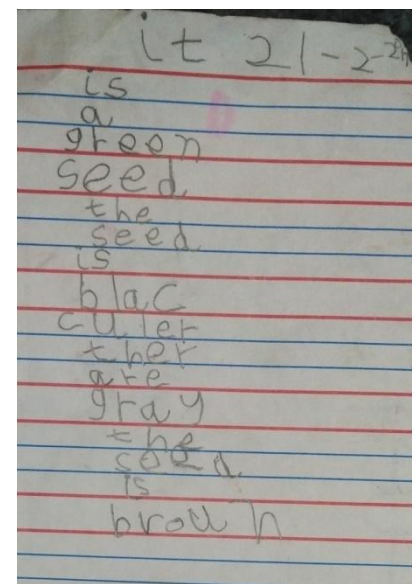 it 21-2-
is
a
green
seed
the
seed
is
blac
culer
ther
are
gray
the
seed
is
brouh